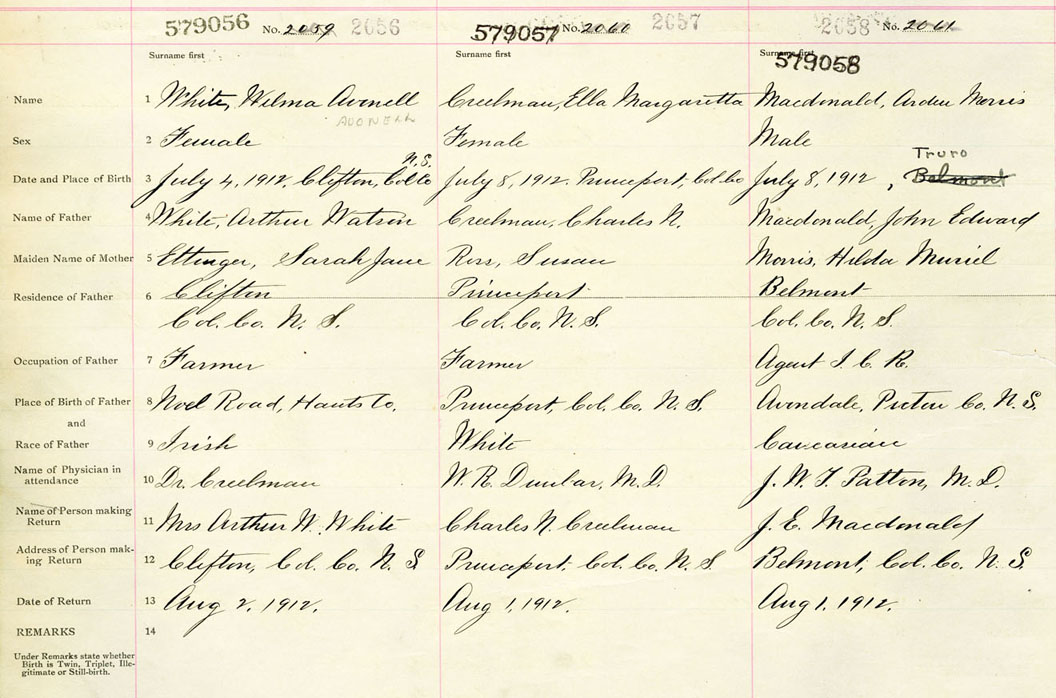 579056 No. 2059 2056 579057 No. 2060 2057 2058 No. 2061
Surname first Surname first Surname first
579058
Name 1 White, Wilma Avonell Creelman, Ella Margaretta Macdonald, Arden Morris
AVONELL
Sex 2 Female Female Male
N.S. Truro
Date and Place of Birth 3 July 4, 1912, Clifton, Col Co July 8, 1912. Princeport, Col. Co July 8, 1912 , Belmont
Name of Father 4 White, Arthur Watson Creelman, Charles N. Macdonald, John Edward
Maiden Name of Mother 5 Ettinger, Sarah Jane Ross, Susan Morris, Hilda Muriel
Residence of Father 6 Clifton Princeport Belmont
Col. Co. N. S. Col. Co. N. S. Col. Co. N. S.
Occupation of Father 7 Farmer Farmer Agent I. C. R.
Place of Birth of Father 8 Noel Road, Hants Co. Princeport, Col. Co. N. S. Avondale, Pictou Co. N. S.
and
Race of Father 9 Irish White Caucasian
Name of Physician in
attendance 10 Dr. Creelman W. R. Dunbar, M. D. J. W. T. Patton, M. D.
Name of Person making
Return 11 Mrs Arthur W. White Charles N. Creelman J. E. Macdonald
Address of Person mak-
ing Return 12 Clifton, Col. Co. N. S Princeport, Col. Co. N. S. Belmont, Col. Co. N. S.
Date of Return 13 Aug 2, 1912. Aug 1, 1912. Aug 1. 1912.
REMARKS 14
Under Remarks state whether
Birth is Twin, Triplet, Ille-
gitimate or Still-birth.